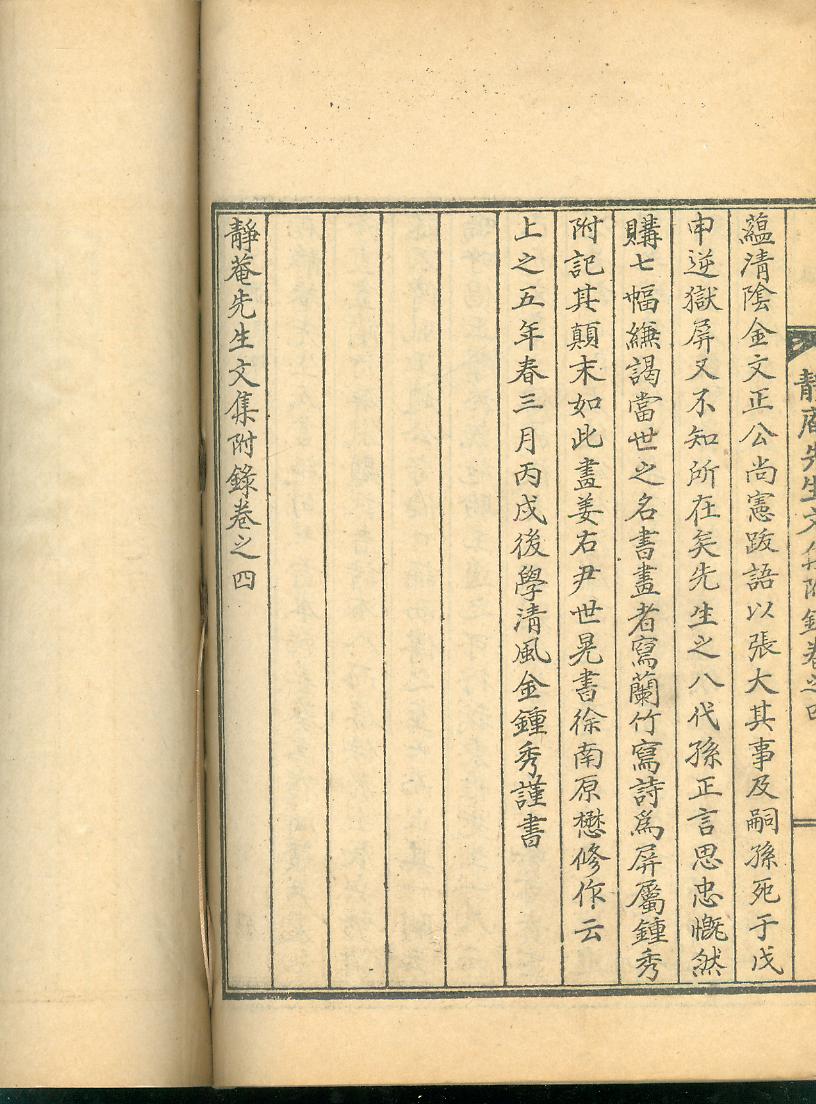 靜庵先生文集附錄卷之四
蘊清陰金文正公尚憲跋語以張大其事及嗣孫死于戊
申逆獄屏又不知所在矣先生之八代孫正言思忠慨然
購七幅縑謁當世之名書畫者寫蘭竹寫詩爲屏屬鍾秀
附記其顛末如此畫姜右尹世晃書徐南原懋修作云
上之五年春三月丙戌後學清風金鍾秀謹書
靜菴先生文集附錄卷之四